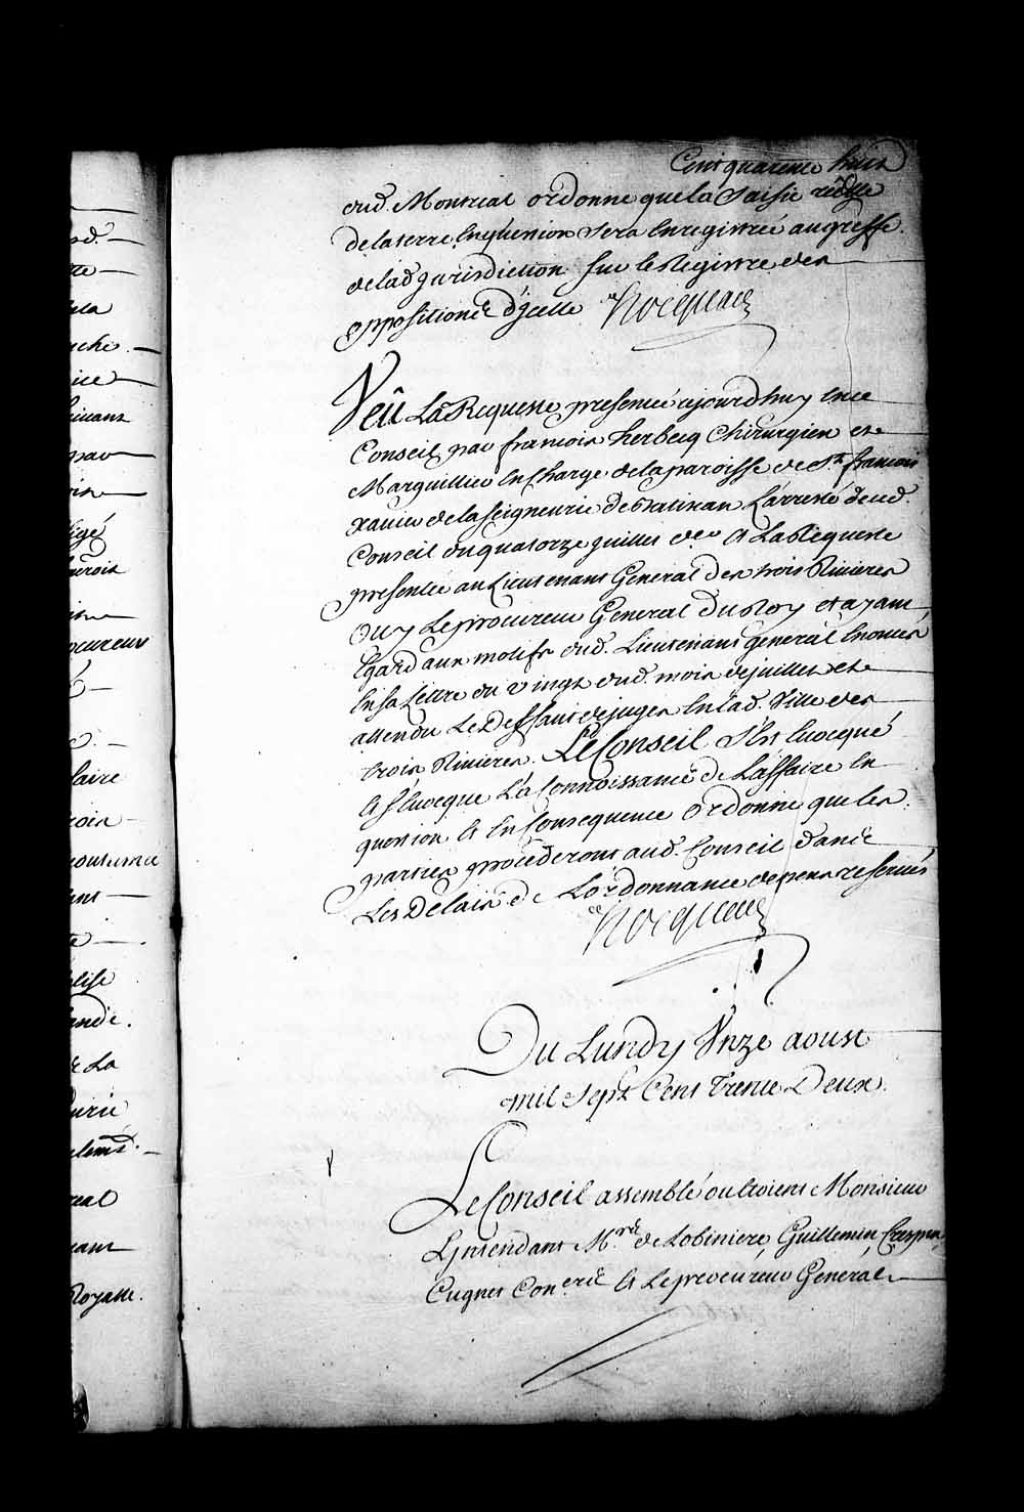 Cent quarente huit
aud. Montreal ordonne que la Saisie réelle
de la terre en question Sera Enregistrée au greffe
de lad Jurisdiction Sur le Registre des
oppositions d'jcelle Hocquart
Veü La Requeste presentée cejourdhuy En ce
Conseil par francois herbecq Chirurgien et
Marguillier En Charge de la paroisse de St. francois
xavier de la Seigneurie de batiscan L'arresté de ced.
Conseil du quatorze juillet der. A La Requeste
presentée au Lieutenant General des trois Rivieres
Ouy Le procureur General du Roy et ayant
Egard aux motifs dud. Lieutenant general Enoncés
En Sa Lettre du vingt dud. mois de juillet et
attendu Le Deffaut de juges En lad. Ville des
trois Rivieres. Le Conseil S'est Evocqué
Et Evocque La Connoissance de L'affaire En
question Et En Consequence ordonne que les
parties procederont aud. Conseil dans
Les Delais de L'ordonnance depens reservés
Hocquart
Du Lundy Unze aoust
mil Sept Cent Trente Deux.
Le Conseil assemblé ou Etoient Monsieur
L'Jntendant Mrs de Lobiniere, Guillemin, Crespin,
Cugnet Coners Et Le procureur General
rd.
che
ice
ivant
par
ocureur
é
laire
rois
coutume
lise
ande.
& La
real
Royalle.